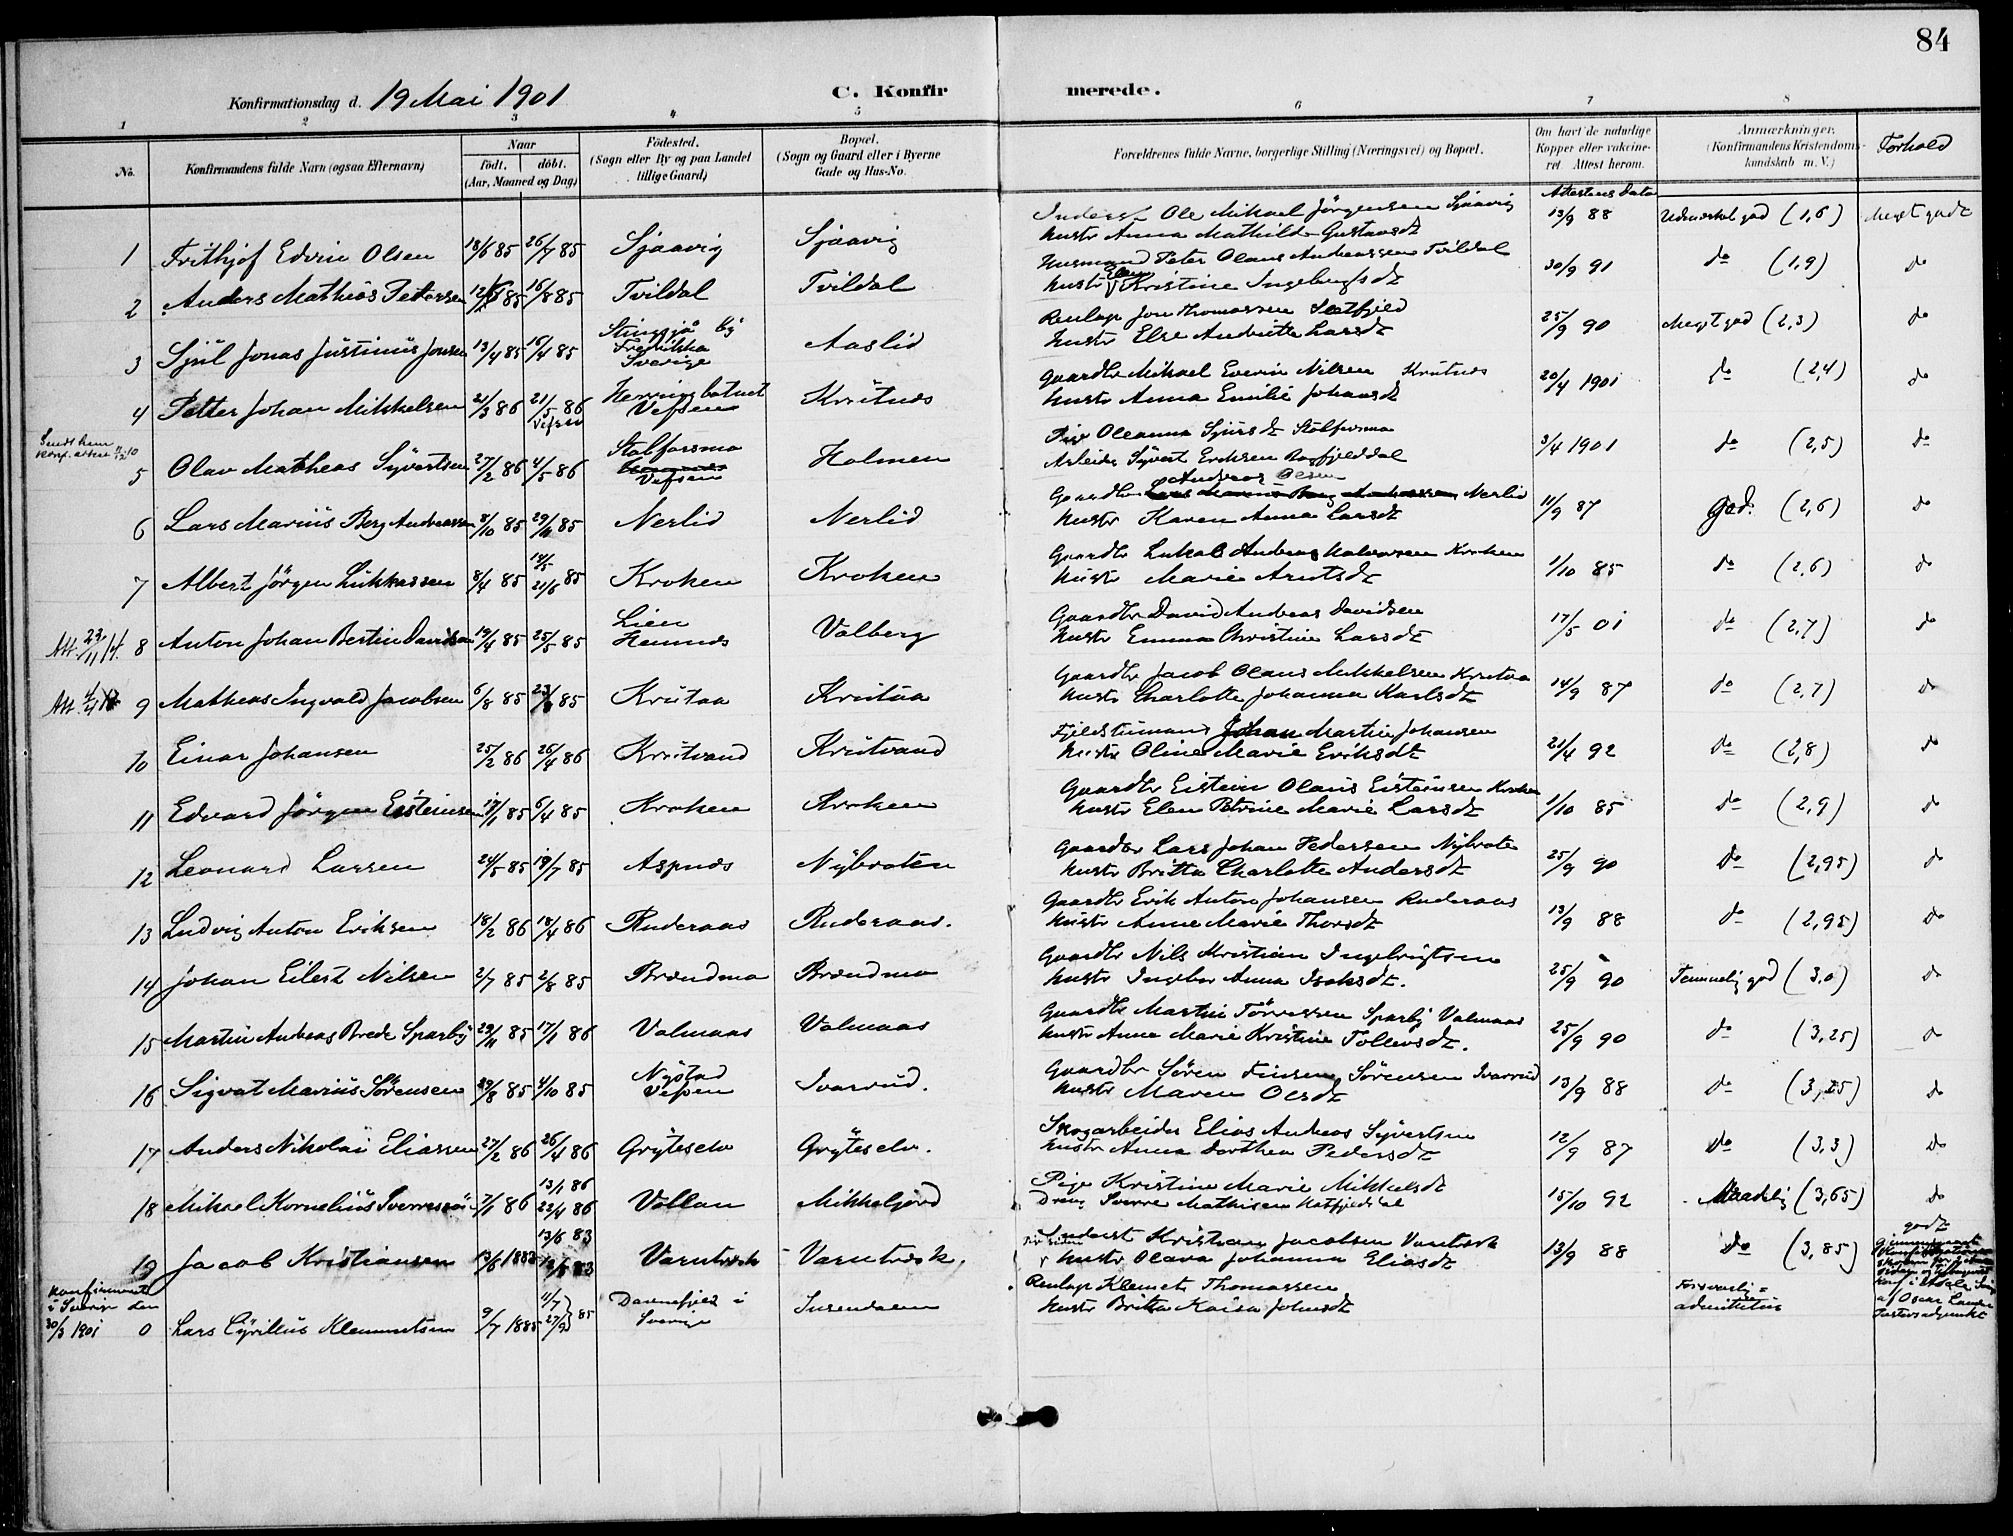 84
Konfirmationsdag d. 19 Mai 1901
C. Konfirmerede.
1 2 3 4 5 6 7 8
No.
Konfirmandens fulde Navn (ogsaa Efternavn)
Naar
födt. döbt.
(Aar, Maaned og Dag)
Födested.
(Sogn eller By og paa Landet
tillige Gaard)
Bopæl.
(Sogn og Gaard eller i Byerne
Gade og Hus-No.
Forældrenes fulde Navne, borgerlige Stilling (Næringsvei) og Bopæl.
Om havt de naturlige
Kopper eller vakcine-
ret. Attest herom.
Anmærkninger.
(Konfirmandens Kristendoms-
kundskab m. V.)
Forhold
Attestens Dato
Inderst Ole Mikael Jörgensen Sjaavig
1 Frithjof Edvin Olsen 18/6 85 26/7 85 Sjaavig Sjaavig Hustr Anna Mathilde Gustavsdt 13/9 88 Udmærket god (1,6) Meget godt
Husmand Peter Olaus Andreassen Tvildal
2 Anders Mathias Pettersen 85 16/8 85 Tvildal Tvildal Hustr Elen Kristine Ingebrigtsdt 30/9 91 do (1,9) do
Renlap Jon Thomassen
3 Sjul Jonas Justinus Jonsen 13/4 85 16/4 85 Fredrikka Sverige Aaslid Hustr Else Andritte Larsdt 25/9 90 Meget god (2,3) do
Gaardbr Mikael Everin Nilsen Krutnes
4 Petter Johan Mikkelsen 21/3 86 21/5 86 Vefsen Vefsen Krutnes Hustr Anna Emilie Johansdt 20/4 1901 do (2,4) do
Pige Oleanna Sjursdt Stolforsmo
5 Olav Matheas Syvertsen 27/2 86 4/5 86 Stolforsmo Vefsen Holmen Arbeider Syvert Eriksen 3/4 1901 do (2,5) do
Andreas Olsen
Gaardbr Nerlid
6 Lars Marius Berg Andreassen 8/10 85 29/11 85 Nerlid Nerlid Hustr Karen Anna Larsdt 11/9 87 god. (2,6) do
Gaardbr Lukas Andreas Halvorsen Kroken
7 Albert Jörgen Lukkassen 8/4 85 14/5 21/6 85 Kroken Kroken Hustr Marie Arntsdt 1/10 85 do (2,6) do
Gaardbr David Andreas Davidsen
Att. 23/11 14. 8 Anton Johan Bertin Davidsen 19/4 85 25/5 85 Lien Hemnes Valberg Hustr Emma Christine Larsdt 17/5 01 do (2,7) do
Gaardbr Jacob Olaus Mikkelsen Krutaa
Att. 9 Matheas Ingvald Jacobsen 6/8 85 85 Krutaa Krutaa Hustr Charlotte Johanna Karlsdt 14/9 87 do (2,7) do
Fjeldstumand Johan Martin Johansen
10 Einar Johansen 25/2 86 26/4 86 Krutvand Krutvand Hustr Oline Marie Eriksdt 21/4 92 do (2,8) do
Gaardbr Eistein Olaus Eisteinsen Kroken
11 Edvard Jörgen Eisteinsen 17/1 85 6/4 85 Kroken Kroken Hustr Elen Petrine Marie Larsdt 1/10 85 do (2,9) do
Gaardbr Lars Johan Pedersen Nybroten
12 Leonard Larsen 24/5 85 19/7 85 Aspnes Nybroten Hustr Britta Charlotte Andersdt 25/9 90 do (2,95) do
Gaardbr Erik Anton Johansen Ruderaas
13 Ludvig Anton Eriksen 18/2 86 18/4 86 Ruderaas Ruderaas. Hustr Anne Marie Thorsdt 13/9 88 do (2,95) do
Gaardbr Nils Kristian Ingebrigtsen
14 Johan Eilert Nilsen 2/7 85 2/8 85 Brændmo Brændmo Hustr Ingebor Anna Isaksdt. 25/9 90 Temmelig god (3,0) do
Gaardbr Martin Sparby Valmaas
15 Martin Andreas Brede Sparby 29/11 85 17/1 86 Valmaas Valmaas Hustr Anne Marie Kristine Tollevsdt. 25/9 90 do (3,25) do
Gaardbr Sören Sörensen Ivarrud
16 Sigvat Marius Sörensen 29/8 85 4/10 85 Nystad Vefsen Ivarrud. Hustr Maren Olsdt 13/9 88 do (3,25) do
Skogarbeider Elias Andreas Syvertsen
17 Anders Nikolai Eliassen 27/2 86 26/4 86 Gryteselv Gryteselv. Hustr Anna Dorthea Pedersdt 12/9 87 do (3,3) do
Pige Kristine Marie Mikkelsdt
18 Mikael Kornelius Sverressön 7/1 86 13/1 86 22/4 86 Vollan Mikkeljord Dreng Sverre Mathisen Hatfjeldal 15/10 92 Maadelig (3,65) do
Inderst Kristian Jacobsen Varntresk
19 Jacob Kristiansen 13/6 1883 13/6 83 83 Varntresk Varntresk. Hustr Olava Johanna Eliasdt 13/9 88 do (3,85) godt
Renlap Klemet Thomassen
Konfirmeret i Sverige den 30/3 1901 0 Lars Cyrillus Klemmetsen 9/7 1885 11/7 27/9 85 i Sverige Susendalen Hustr Britta Kaisa Johnsdt
af Oscar
Pastorsadjunkt